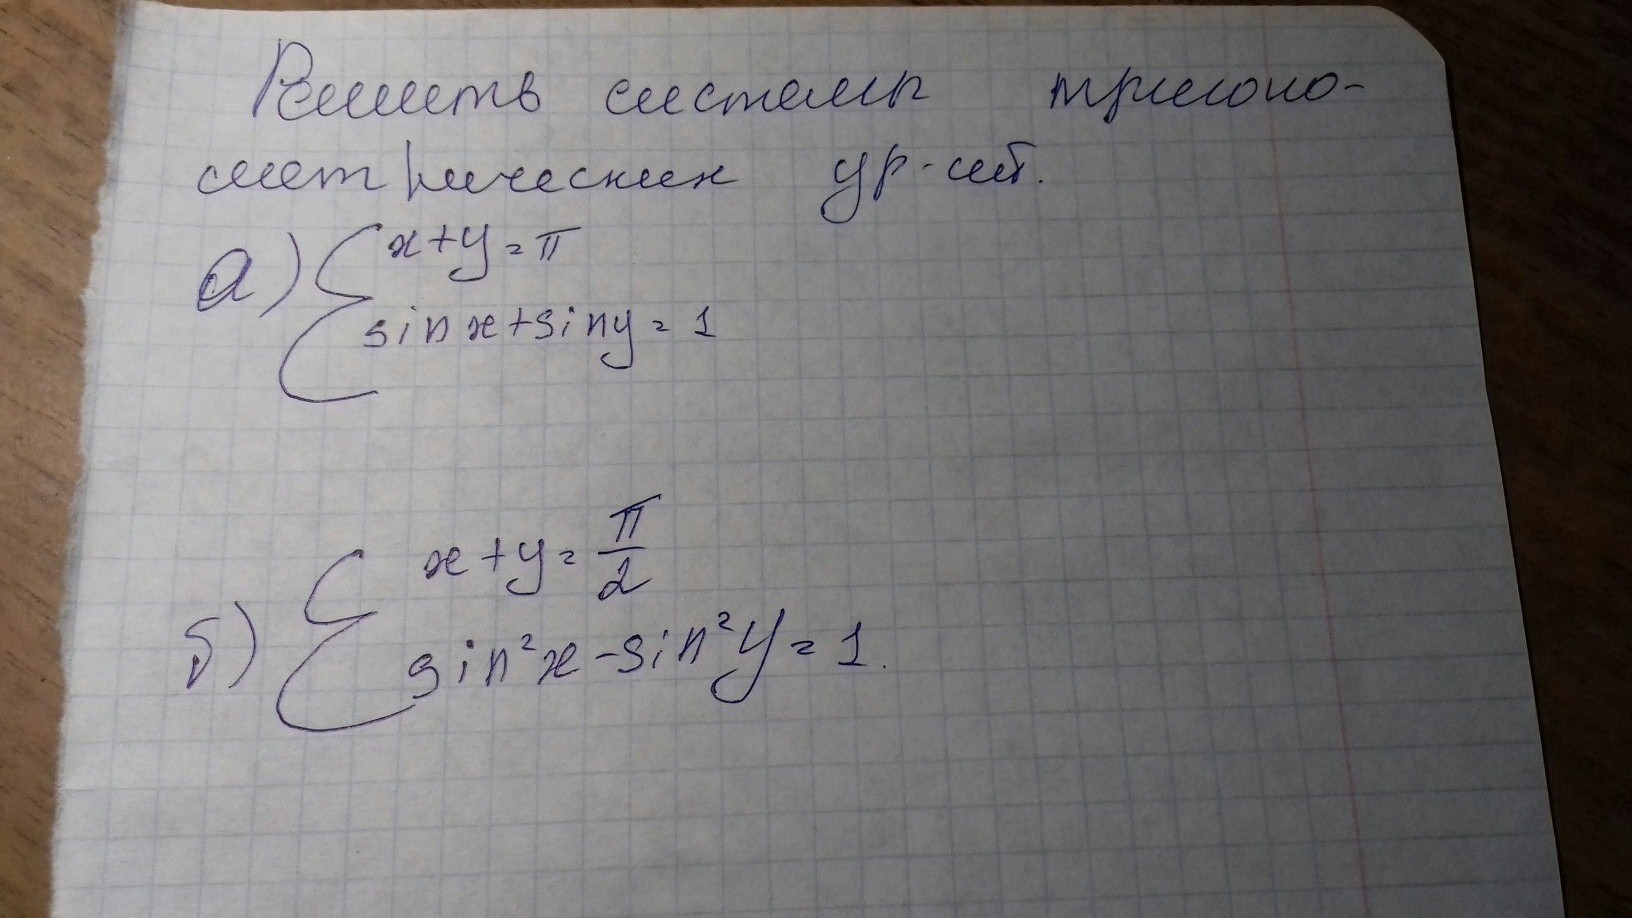 Решить системы тригоно-
метрических ур-ий.
а) { x+y=π
sinx+siny=1
б) { x+y=π/2
sin²x-sin²y=1.